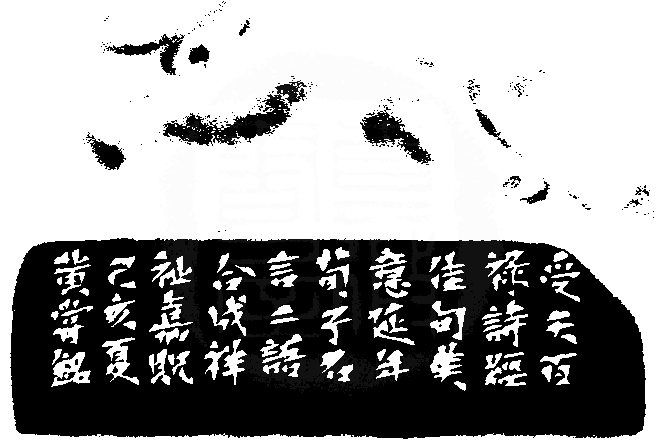 受天百
祿詩經
佳句美
意延年
荀子名
言二語
合成祥
祉嘉貺
己亥夏
黃嘗銘